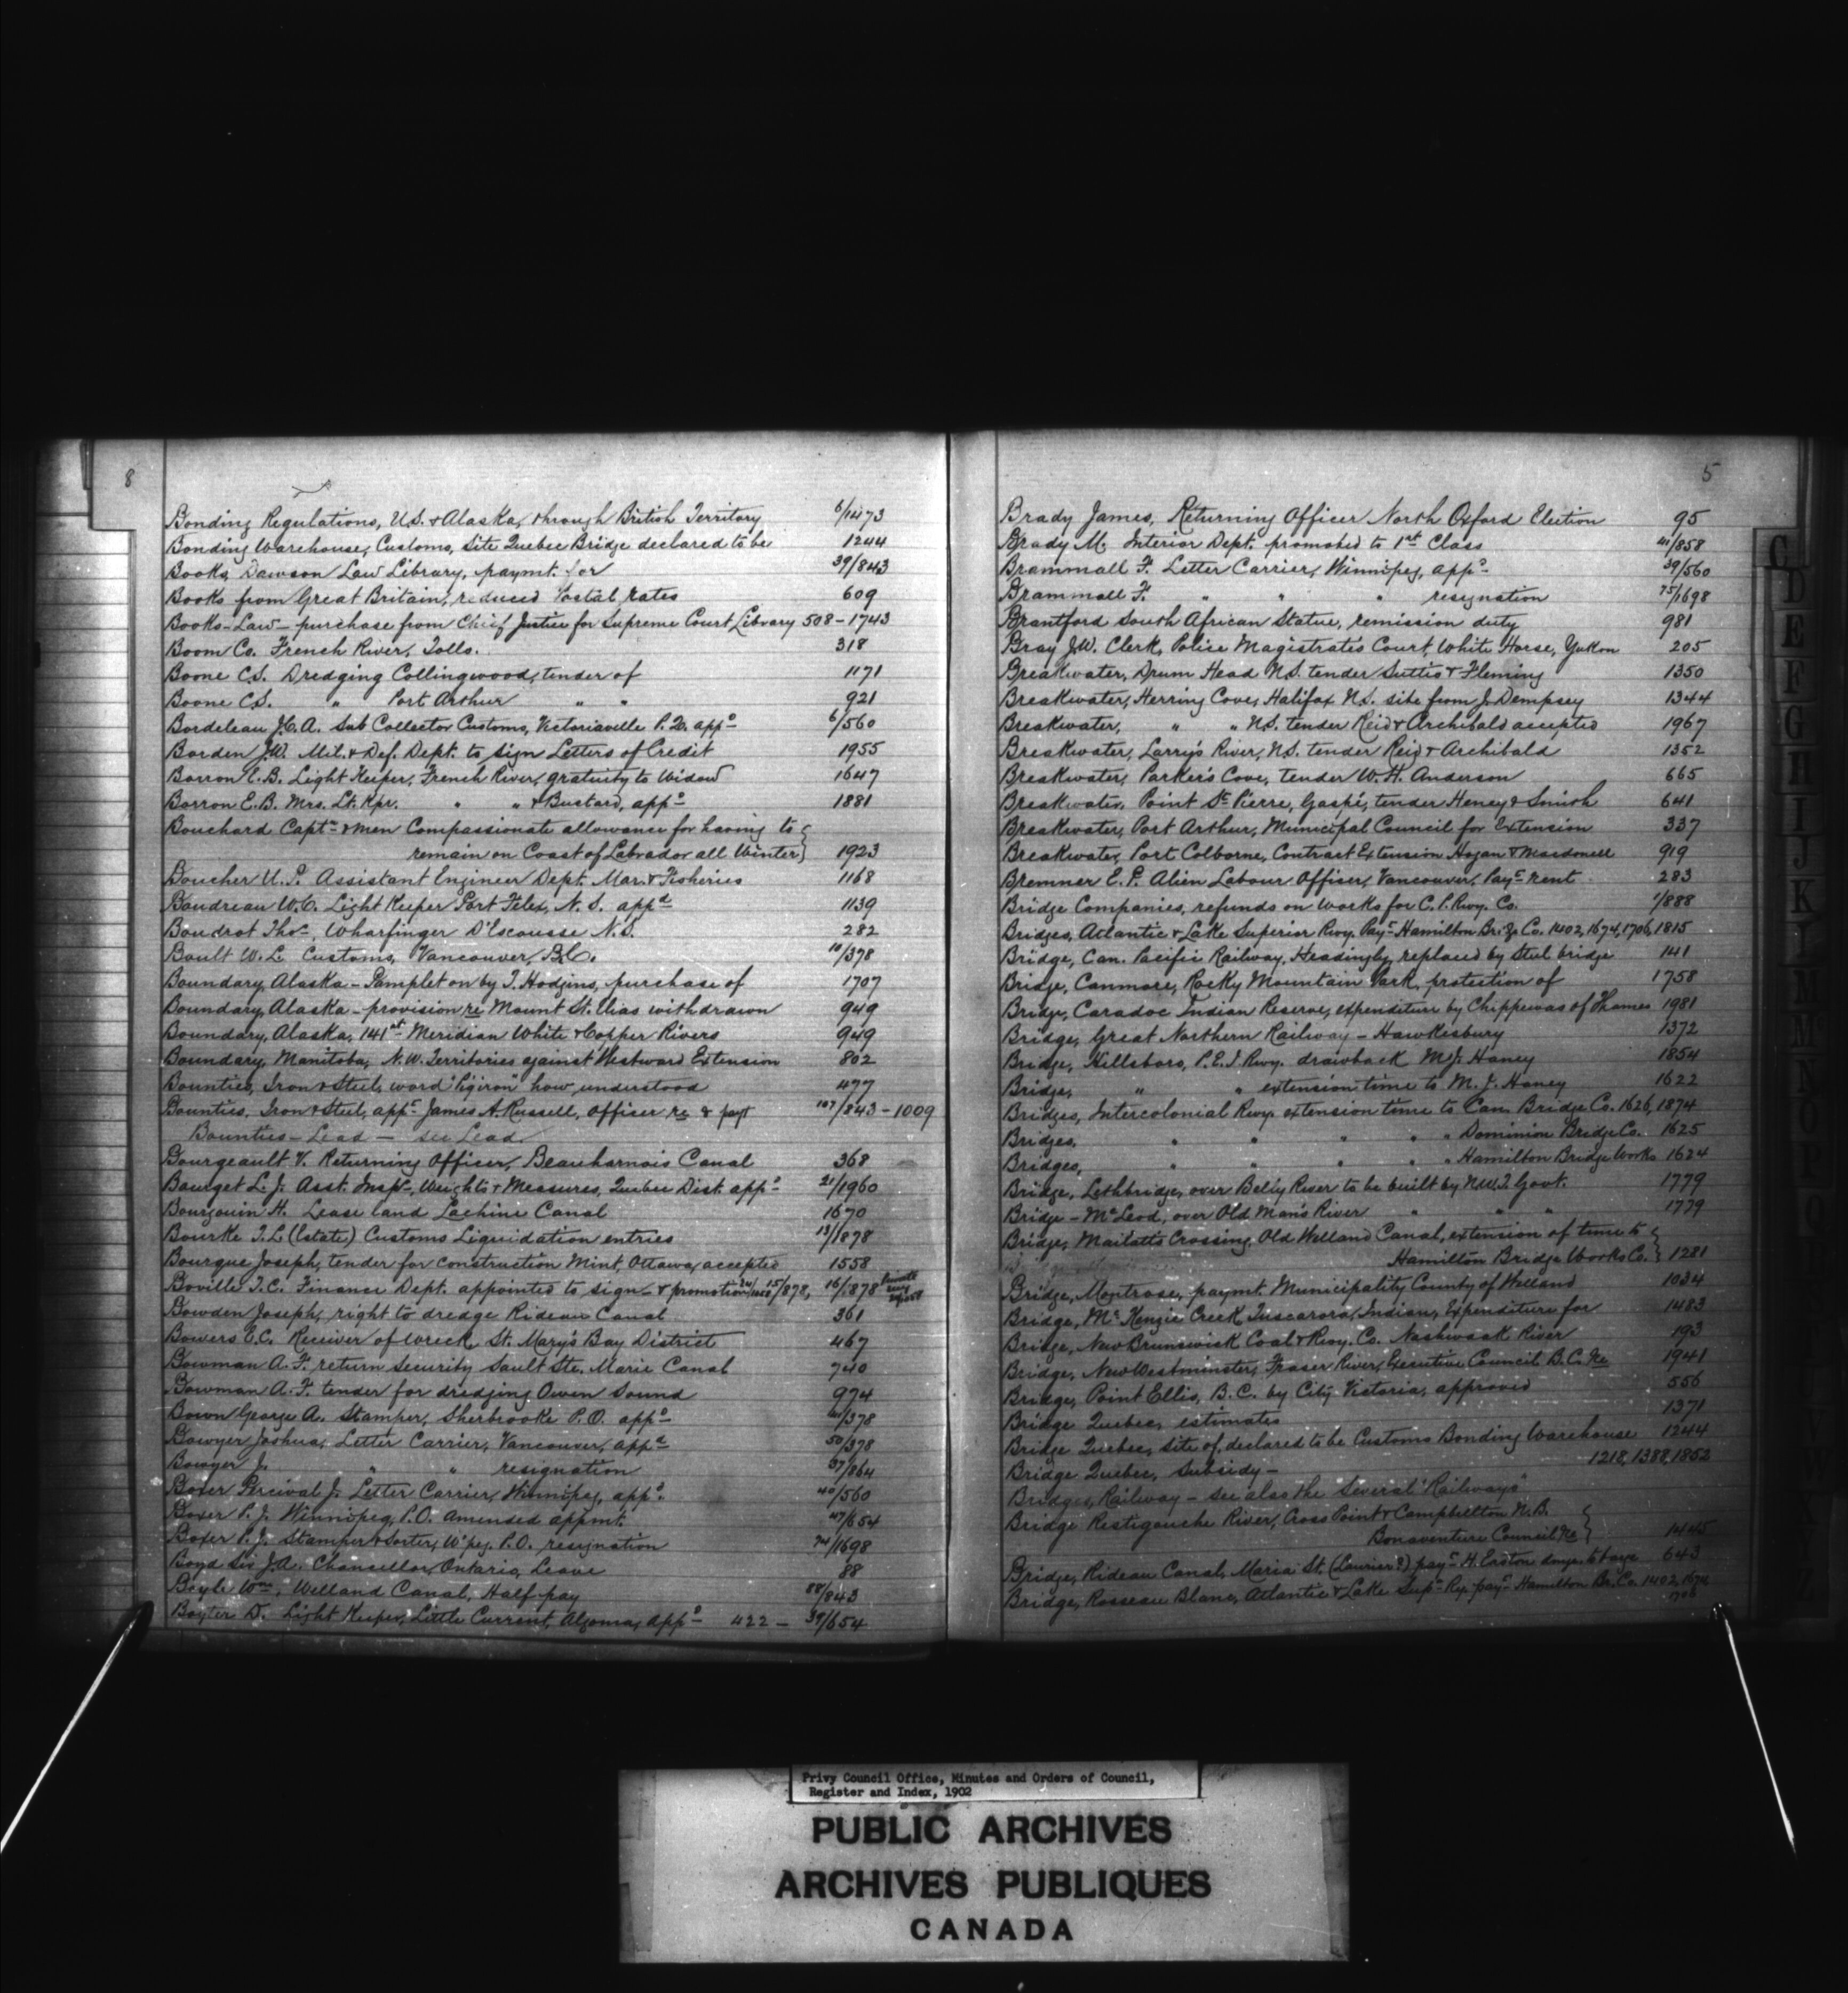 8
Bonding Regulations, U.S. & Alaska, through British Territory 6/1473
Bonding Warehouse, Customs, Site Quebec Bridge declared to be 1244
Books, Dawson Law Library, paymt. for 39/843
Books from Great Britain, reduced Postal rates 609
Books - Law - purchase from Chief Justice for Supreme Court Library 508 - 1743
Boom Co. French River, Tolls. 318
Boone C.S. Dredging Collingwood, tender of 1171
Boone C.S. " Port Arthur " " 921
Bordeleau J.C.A. Sub Collector Customs, Victoriaville P.Q. appd 6/560
Borden J.W. Mil. & Def. Dept. to sign Letters of Credit 1955
Borron E.B. Light Keeper, French River, gratuity to Widow 1647
Borron E.B. Mrs. Lt. Kpr. " " & Bustard, appd 1881
Bouchard Captn & men Compassionate allowance for having to
remain on Coast of Labrador all Winter 1923
Boucher U.P. Assistant Engineer Dept. Mar. & Fisheries 1168
Boudreau W.C. Light Keeper Port Felix, N.S. appd 1139
Boudrot Thos, Wharfinger D'Escousse N.S. 282
Boult W.L. Customs, Vancouver, B.C. 10/378
Boundary, Alaska - Pamplet on by T. Hodgins, purchase of 1707
Boundary, Alaska - provision re Mount St. Elias withdrawn 949
Boundary, Alaska, 141st Meridian White & Copper Rivers 949
Boundary, Manitoba, N.W. Territories against Westward Extension 802
Bounties, Iron & Steel, word "Pigiron" how understood 477
Bounties, Iron & Steel, appt James A. Russell, officer re & payt 107/843 - 1009
Bounties - Lead - see Lead
Bourgeault V. Returning Officer, Beauharnois Canal 368
Bourget L.J. Asst. Inspr, Weights & Measures, Quebec Dist. appd 21/1960
Bourgouin H. Lease land Lachine Canal 1670
Bourke T.L (Estate) Customs Liquidation entries 13/1878
Bourque Joseph, tender for construction Mint, Ottawa, accepted 1558
Boville T.C. Finance Dept. appointed to sign - & promotion 15/878, 16/1878 Private
Bowden Joseph, right to dredge Rideau Canal 361
Bowers E.C. Receiver of Wreck, St. Mary's Bay District 467
Bowman A.F. return security Sault Ste. Marie Canal 740
Bowman A.F. tender for dredging Owen Sound 974
Bown George A. Stamper, Sherbrooke P.O. appd 41/378
Bowyer Joshua, Letter Carrier, Vancouver, appd 50/378
Bowyer J. " " resignation 37/864
Boxer Percival J. Letter Carrier, Winnipeg, appd. 40/560
Boxer P.J. Winnipeg P.O. amended appmt. 47/654
Boxer P.J. Stamper & Sorter, W'peg. P.O. resignation 74/1698
Boyd Sir J.A. Chancellor, Ontario, Leave 88
Boyle Wm, Welland Canal, Half pay 88/843
Boyter D. Light Keeper, Little Current, Algoma, appd 422 - 39/654
5
Brady James, Returning Officer North Oxford Election 95
Brady M. Interior Dept. promoted to 1st Class 41/858
Brammall F. Letter Carrier, Winnipeg, appd 39/560
Brammall F. " " " resignation 75/1698
Brantford South African Statue, remission duty 981
Bray J.W. Clerk, Police Magistrate's Court, White Horse, Yukon 205
Breakwater, Drum Head N.S. tender Suttis & Fleming 1350
Breakwater, Herring Cove, Halifax N.S. site from J. Dempsey 1344
Breakwater, " " N.S. tender Reid & Archibald accepted 1967
Breakwater, Larry's River, N.S. tender Reid & Archibald 1352
Breakwater, Parker's Cove, tender W.H. Anderson 665
Breakwater, Point St Pierre, Gaspé, tender Heney & Smith 641
Breakwater, Port Arthur, Municipal Council for Extension 337
Breakwater, Port Colborne, Contract Extension Hogan & Macdonell 919
Bremner E.P. Alien Labour Officer, Vancouver, Payt rent 283
Bridge Companies, refunds on works for C.P. Rwy. Co. 1/888
Bridges, Atlantic & Lake Superior Rwy. Payt Hamilton Bridge Co. 1402, 1674, 1706, 1815
Bridge, Can. Pacific Railway, Headingly, replaced by Steel bridge 141
Bridge, Canmore, Rocky Mountain Park, protection of 1758
Bridge, Caradoc Indian Reserve, expenditure by Chippewas of Thames 1981
Bridge, Great Northern Railway - Hawkesbury 1372
Bridge, Hillsboro, P.E.I. Rwy. drawback M.J. Haney 1854
Bridge, " " extension time to M.J. Haney 1622
Bridges, Intercolonial Rwy. extension time to Can. Bridge Co. 1626, 1874
Bridges, " " " " " Dominion Bridge Co. 1625
Bridges, " " " " " Hamilton Bridge Works 1624
Bridge, Lethbridge, over Belly River to be built by N.W.T. Govt. 1779
Bridge - McLeod, over Old Man's River " " " 1779
Bridge, Maitatts Crossing, Old Welland Canal, extension of time to
Hamilton Bridge Works Co. 1281
Bridge, Montrose, paymt. Municipality County of Welland 1034
Bridge, McKenzie Creek Tuscarora, Indian, Expenditure for 1483
Bridge, New Brunswick Coal & Rwy. Co. Nashwaak River 193
Bridge, New Westminster, Fraser River, Executive Council B.C. re 1941
Bridge, Point Ellis, B.C. by City Victoria, approved 556
Bridge Quebec, estimates 1371
Bridge Quebec, site of, declared to be Customs Bonding Warehouse 1244
Bridge Quebec, Subsidy - 1218, 1388, 1852
Bridges, Railway - see also the Several "Railways"
Bridge Restigouche River, Cross Point & Campbellton N.B.
Bonaventure Council re 1445
Bridge, Rideau Canal, Maria St. (Laurier?) payt H. Easton damge to bage 643
Bridge, Rosseau Blanc, Atlantic & Lake Supr Ry. payt Hamilton Br. Co. 1402, 1674
1706
Privy Council Office, Minutes and Orders of Council,
Register and Index, 1902
PUBLIC ARCHIVES
ARCHIVES PUBLIQUES
CANADA